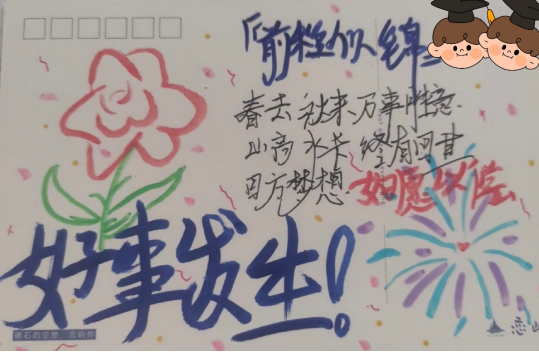 「前程似锦
春去秋来、万事胜意.
山高水长 终有回甘
方梦想 如愿以偿
好事发生!